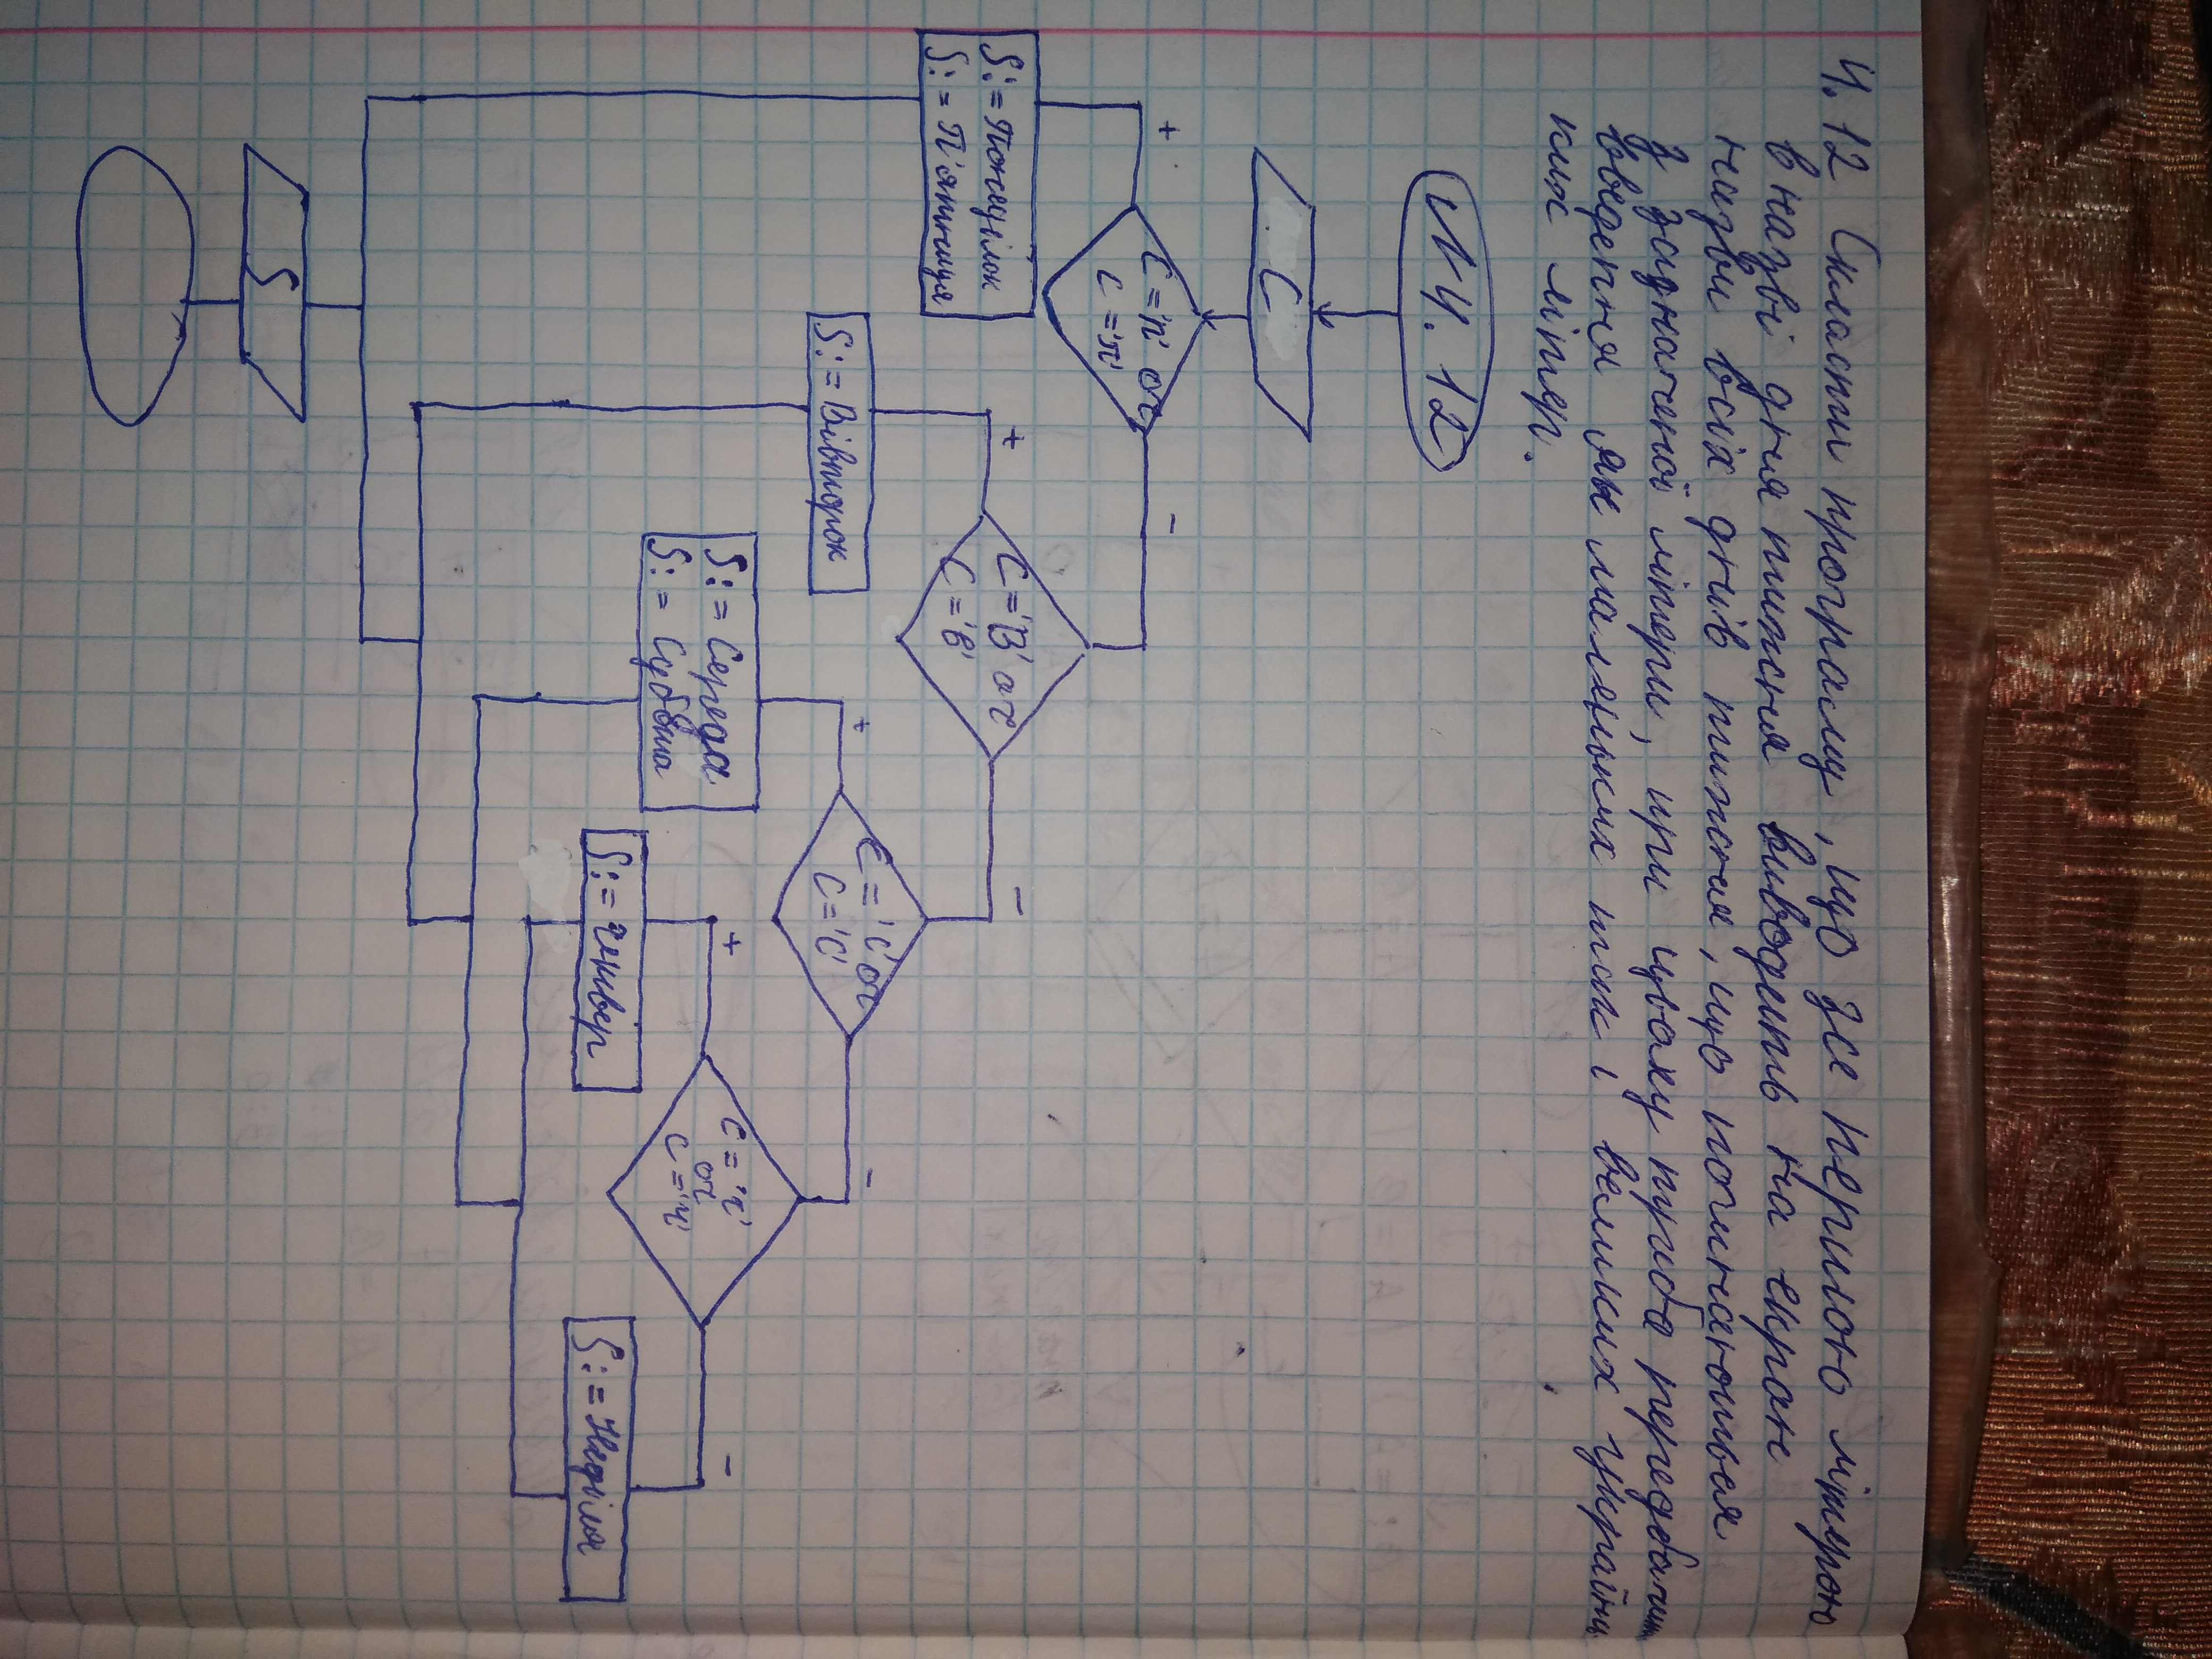 4.12 Скласти програму, що за першою літерою
в назві дня тижня виводить на екран
назви всіх днів тижня, що починаються
з зазначеної літери, при цьому треба передбачити
введення як маленьких так і великих україньс
ких літер.
N4.12
C
+
-
C='П' or
C='п'
S:=Понеділок
S:=П'ятниця
+
-
C='В' or
C='в'
S:=Вівторок
+
-
C='С' or
C='с'
S:=Середа
S:=Субота
+
-
C='ч'
or
C='Ч'
S:=Четвер
S:=Неділя
S